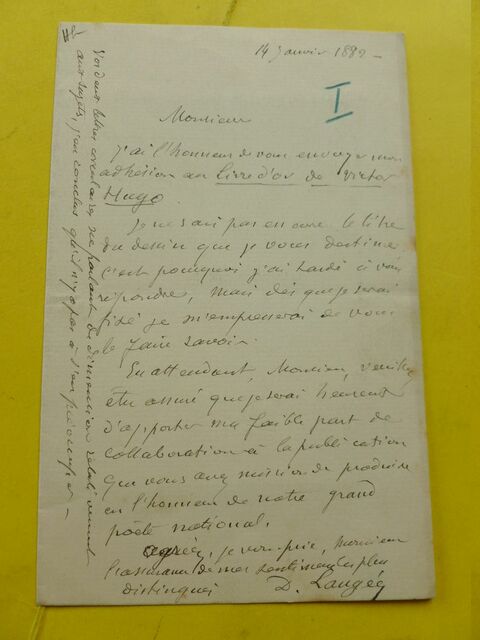 14 Janvier 1882 –
I
Monsieur
J'ai l'honneur de vous envoyer mon
adhésion au livre d'or de Victor
Hugo.
Je ne sais pas encore le titre
du dessin que je vous destine
c'est pourquoi j'ai tardé à vous
répondre, mais dès que je serai
fixé je m'empresserai de vous
le faire savoir.
En attendant, Monsieur, veuillez
être assuré que je serai heureux
d'apporter ma faible part de
collaboration à la publication
que vous avez mission de produire
en l'honneur de notre grand
poète national.
agréez, je vous prie, monsieur
l'assurance de mes sentiments les plus
distingués
D. Laugée
Vos deux lettres circulaires ne parlant de dimension relativement
aux sujets, j'en conclus qu'il n'y a pas à s'en préoccuper –